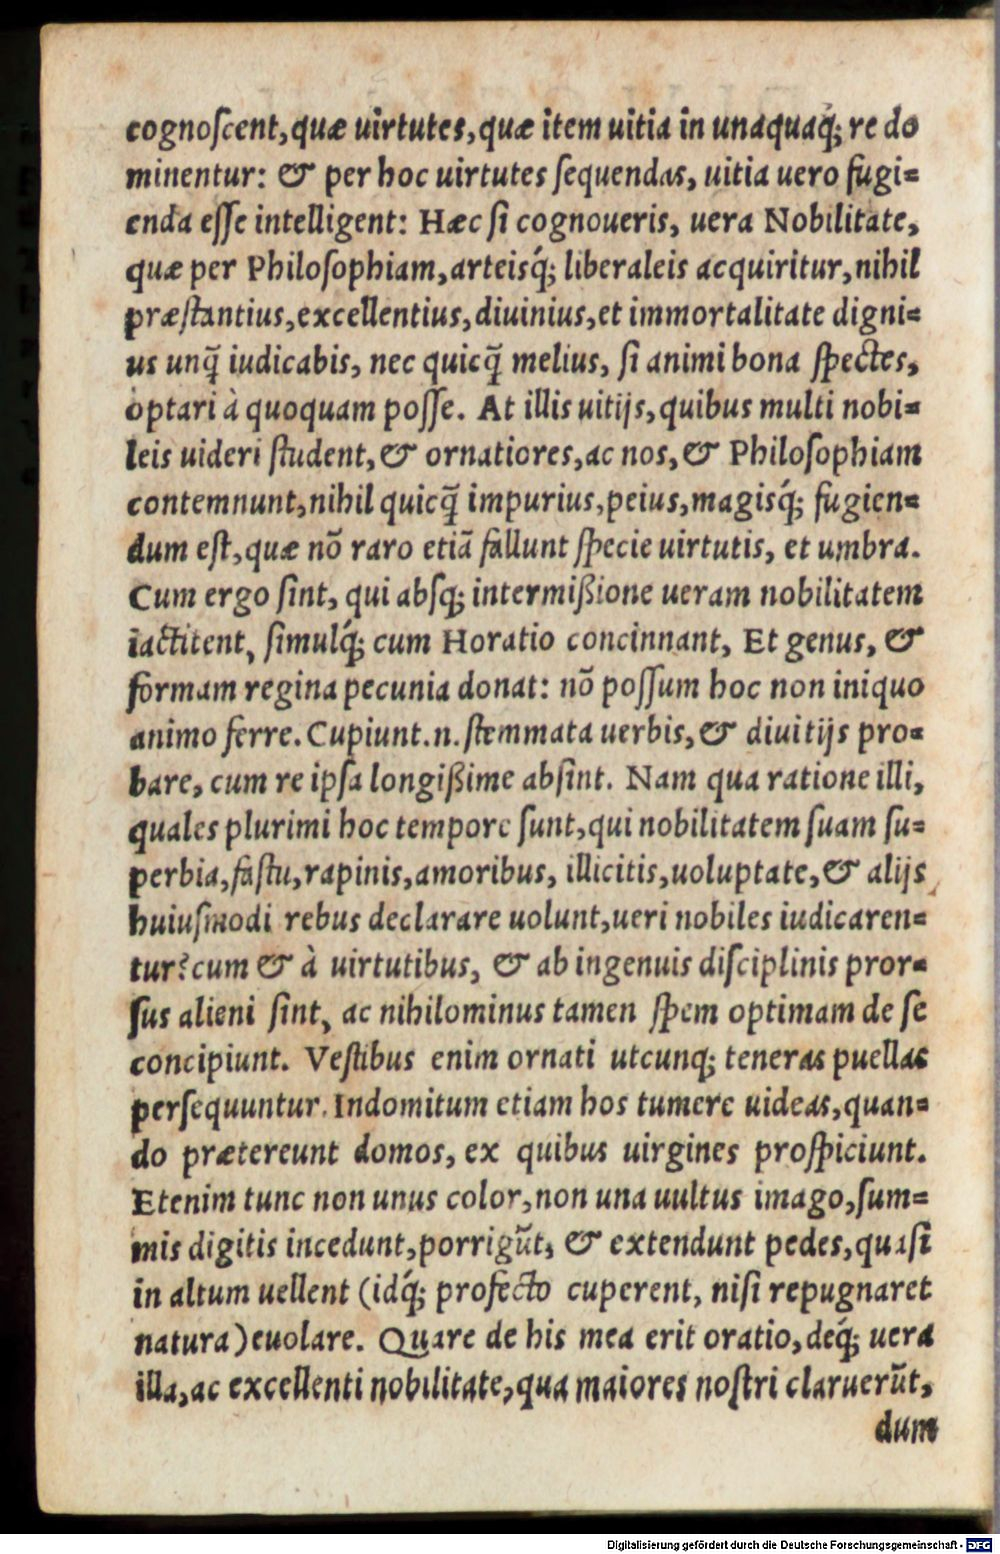 cognoſcent, quæ uirtutes, quæ item uitia in unaquaq́; re do
minentur: & per hoc uirtutes ſequendas, uitia uero fugi=
enda eſſe intelligent: Hæc ſi cognoueris, uera Nobilitate,
quæ per Philoſophiam, arteisq́; liberaleis acquiritur, nihil
præſtantius, excellentius, diuinius, et immortalitate digni=
us unq̃ iudicabis, nec quicq̃ melius, ſi animi bona ſpectes,
optari à quoquam poſſe. At illis uitijs, quibus multi nobi=
leis uideri ſtudent, & ornatiores, ac nos, & Philoſophiam
contemnunt, nihil quicq̃ impurius, peius, magisq́; fugien=
dum eſt, quæ nõ raro etiã fallunt ſpecie uirtutis, et umbra.
Cum ergo ſint, qui absq; intermißione ueram nobilitatem
iactitent, ſimulq́; cum Horatio concinnant, Et genus, &
formam regina pecunia donat: nõ poſſum hoc non iniquo
animo ferre. Cupiunt .n. ſtemmata uerbis, & diuitijs pro=
bare, cum re ipſa longißime abſint. Nam qua ratione illi,
quales plurimi hoc tempore ſunt, qui nobilitatem ſuam ſu=
perbia, faſtu, rapinis, amoribus, illicitis, uoluptate, & alijs
huiuſmodi rebus declarare uolunt, ueri nobiles iudicaren=
tur? cum & à uirtutibus, & ab ingenuis diſciplinis pror=
ſus alieni ſint, ac nihilominus tamen ſpem optimam de ſe
concipiunt. Veſtibus enim ornati utcunq; teneras puellas
perſequuntur. Indomitum etiam hos tumere uideas, quan=
do prætereunt domos, ex quibus uirgines proſpiciunt.
Etenim tunc non unus color, non una uultus imago, ſum=
mis digitis incedunt, porrigũt, & extendunt pedes, quaſi
in altum uellent (idq́; profecto cuperent, niſi repugnaret
natura) euolare. Quare de his mea erit oratio, deq́; uera
illa, ac excellenti nobilitate, qua maiores noſtri claruerũt,
dum
Digitalisierung gefördert durch die Deutsche Forschungsgemeinschaft - DFG